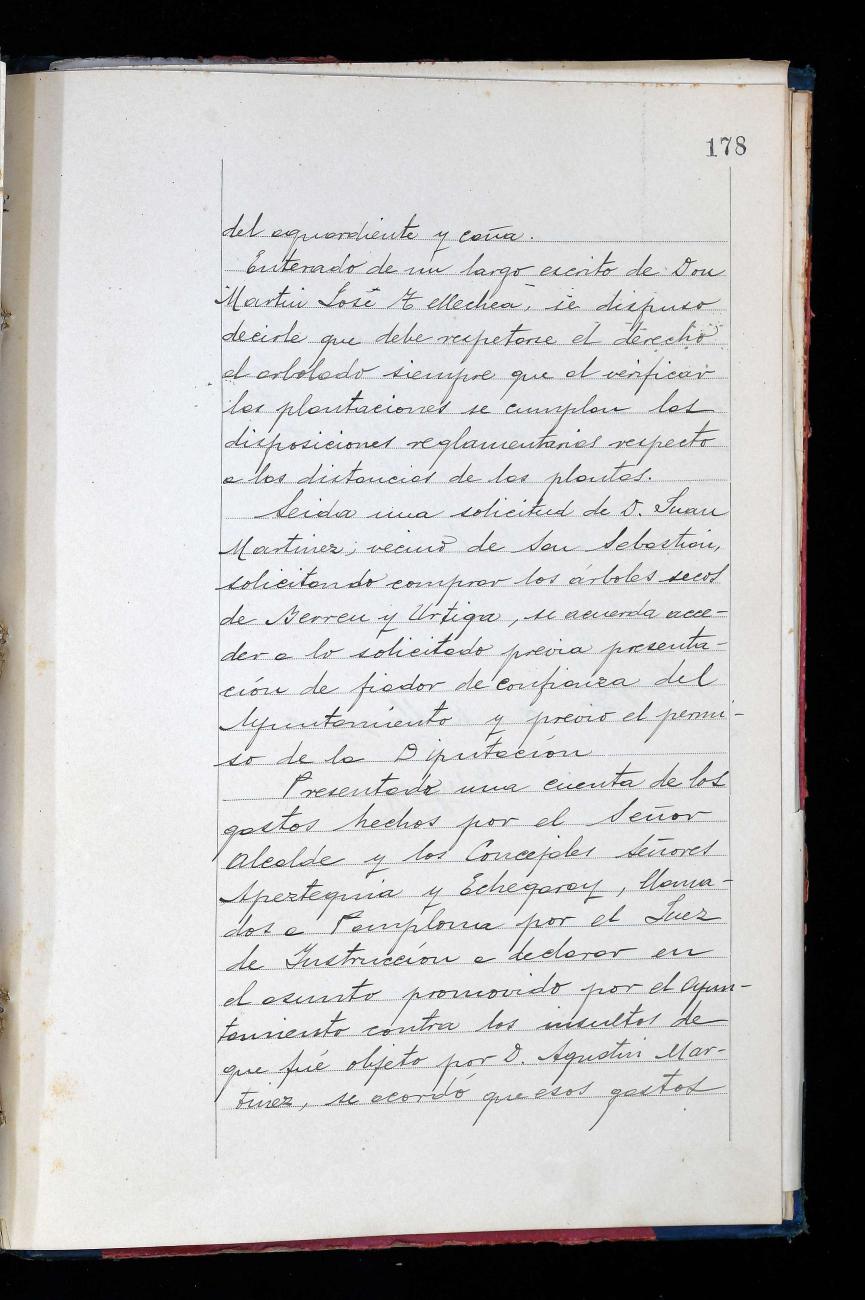 178
del aguardiente y caña.
Enterado de un largo escrito de Don
Martin José Tellechea, se dispuso
decirle que debe respetarse el derecho
al arbolado siempre que al verificar
las plantaciones se cumplan las
disposiciones reglamentarias respecto
a las distancias de las plantas.
Leida una solicitud de D. Juan
Martinez, vecino de San Sebastian,
solicitando comprar los árboles secos
de Berreu y Urtiga, se acuerda acce-
der a lo solicitado previa presenta-
ción de fiador de confianza del
Ayuntamiento y previo el permi-
so de la Diputación
Presentada una cuenta de los
gastos hechos por el Señor
Alcalde y los Concejales Señores
Apeztequia y Echegaray, llama-
dos a Pamplona por el Juez
de Instrucción a declarar en
el asunto promovido por el Ayun-
tamiento contra los insultos de
que fué objeto por D. Agustin Mar-
tinez, se acordó que esos gastos